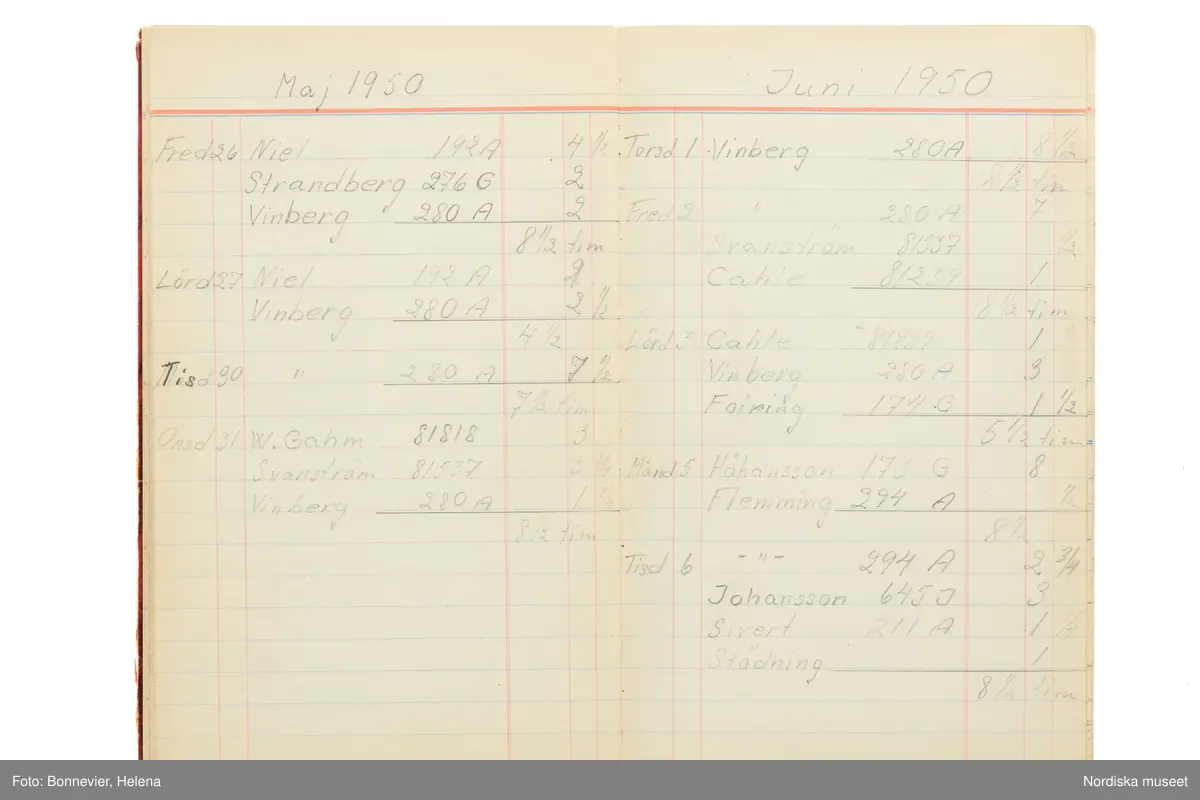 Maj 1950
Fred 26 Niel 192 A 4 1/2
Strandberg 276 G 2
Vinberg 280 A 2
8 1/2 tim
Lörd 27 Niel 192 A 2
Vinberg 280 A 2 1/2
4 1/2
Tisd 30 " 280 A 7 1/2
7 1/2 tim
Onsd 31 W. Gahm 81818 3
Svanström 81537 3
Vinberg 280 A 1
8 1/2 tim
Juni 1950
Torsd 1 Vinberg 280 A 8 1/2
8 1/2 tim
Fred 2 " 280 A 7
Svanström 81537 1/2
Cahle 81239 1
8 1/2 tim
Lörd 3 Cahle 1
Vinberg 280 A 3
174 G 1 1/2
5 1/2 tim
Månd 5 Håkansson G 8
Flemming 294 A 1/2
8 1/2
Tisd 6 - " - 294 A 2 3/4
Johansson 645 J 3
Sivert 211 A 1
Städning 1
8 1/2 tim
Foto: Bonnevier, Helena
Nordiska museet